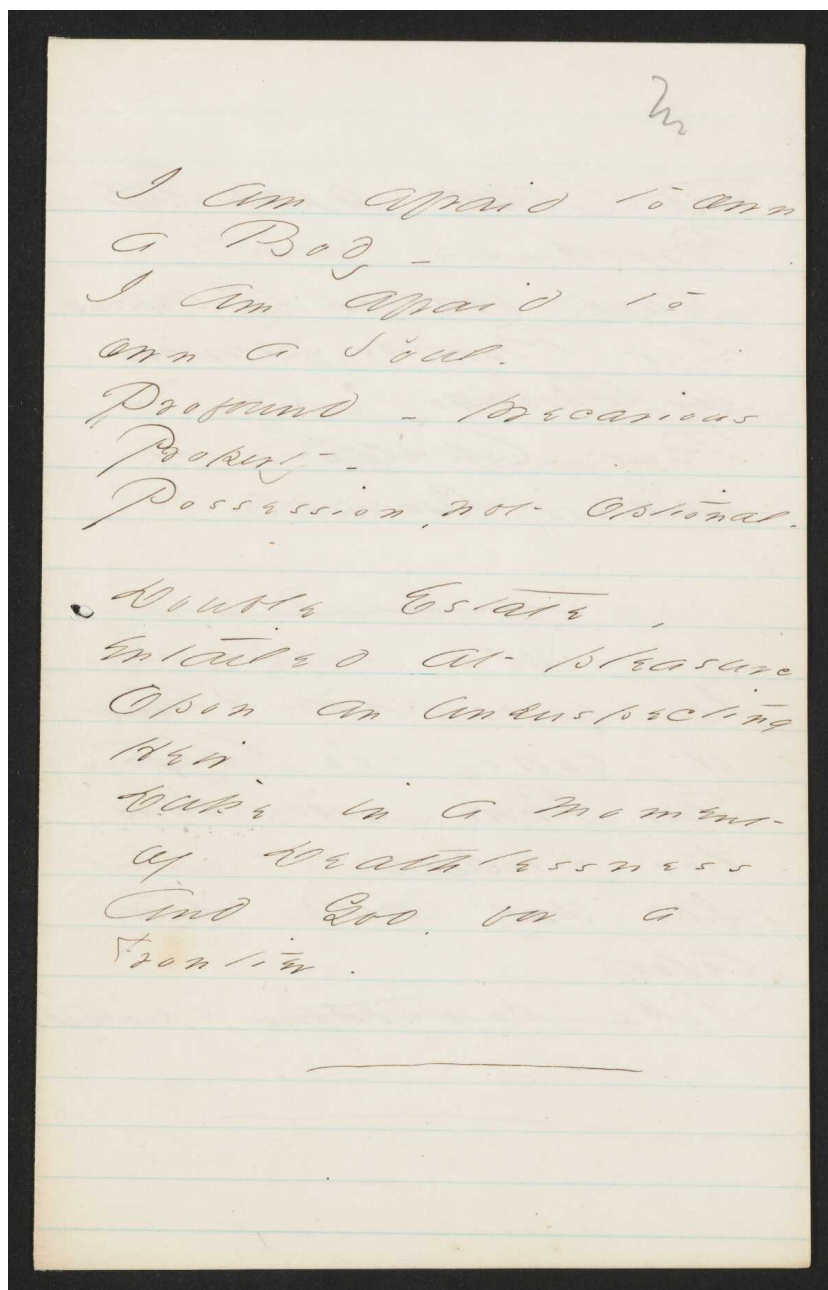 I am afraid to own
a Body –
I am afraid to
own a Soul.
Profound – precarious
Property –
Possession, not Optional.
Double Estate,
entailed at pleasure
Opon an unsuspecting
Heir
Duke in a moment
of Deathlessness
And God, for a
Frontier.